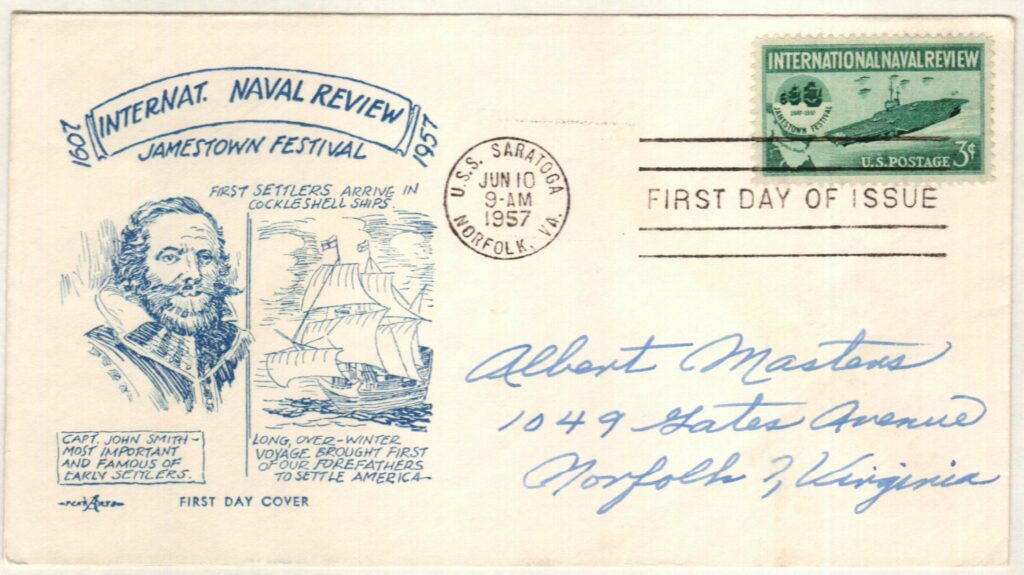 1607
INTERNAT. NAVAL REVIEW
1957
JAMESTOWN FESTIVAL
FIRST SETTLERS ARRIVE IN
COCKLESHELL SHIPS.
CAPT. JOHN SMITH-
MOST IMPORTANT
AND FAMOUS OF
EARLY SETTLERS.
LONG, OVER-WINTER
VOYAGE BROUGHT FIRST
OF OUR FOREFATHERS
TO SETTLE AMERICA-
FIRST DAY COVER
U.S.S. SARATOGA
JUN 10
9-AM
1957
NORFOLK, VA.
INTERNATIONAL NAVAL REVIEW
1607-1957
JAMESTOWN FESTIVAL
U.S. POSTAGE 3¢
FIRST DAY OF ISSUE
Albert Masters
1049 Gates Avenue
Norfolk 7, Virginia